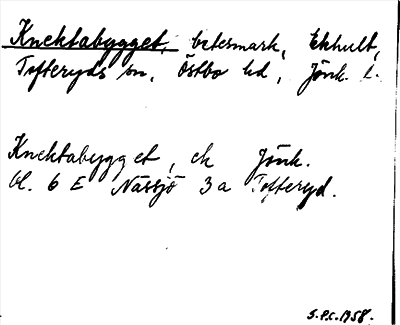 Knektabygget, betesmark, Ekhult,
Tofteryds sn, Östbo hd, Jönk. l.
Knektabygget, ek Jönk.
bl. 6 E Nässjö 3a Tofteryd.
S.P.C. 1958.